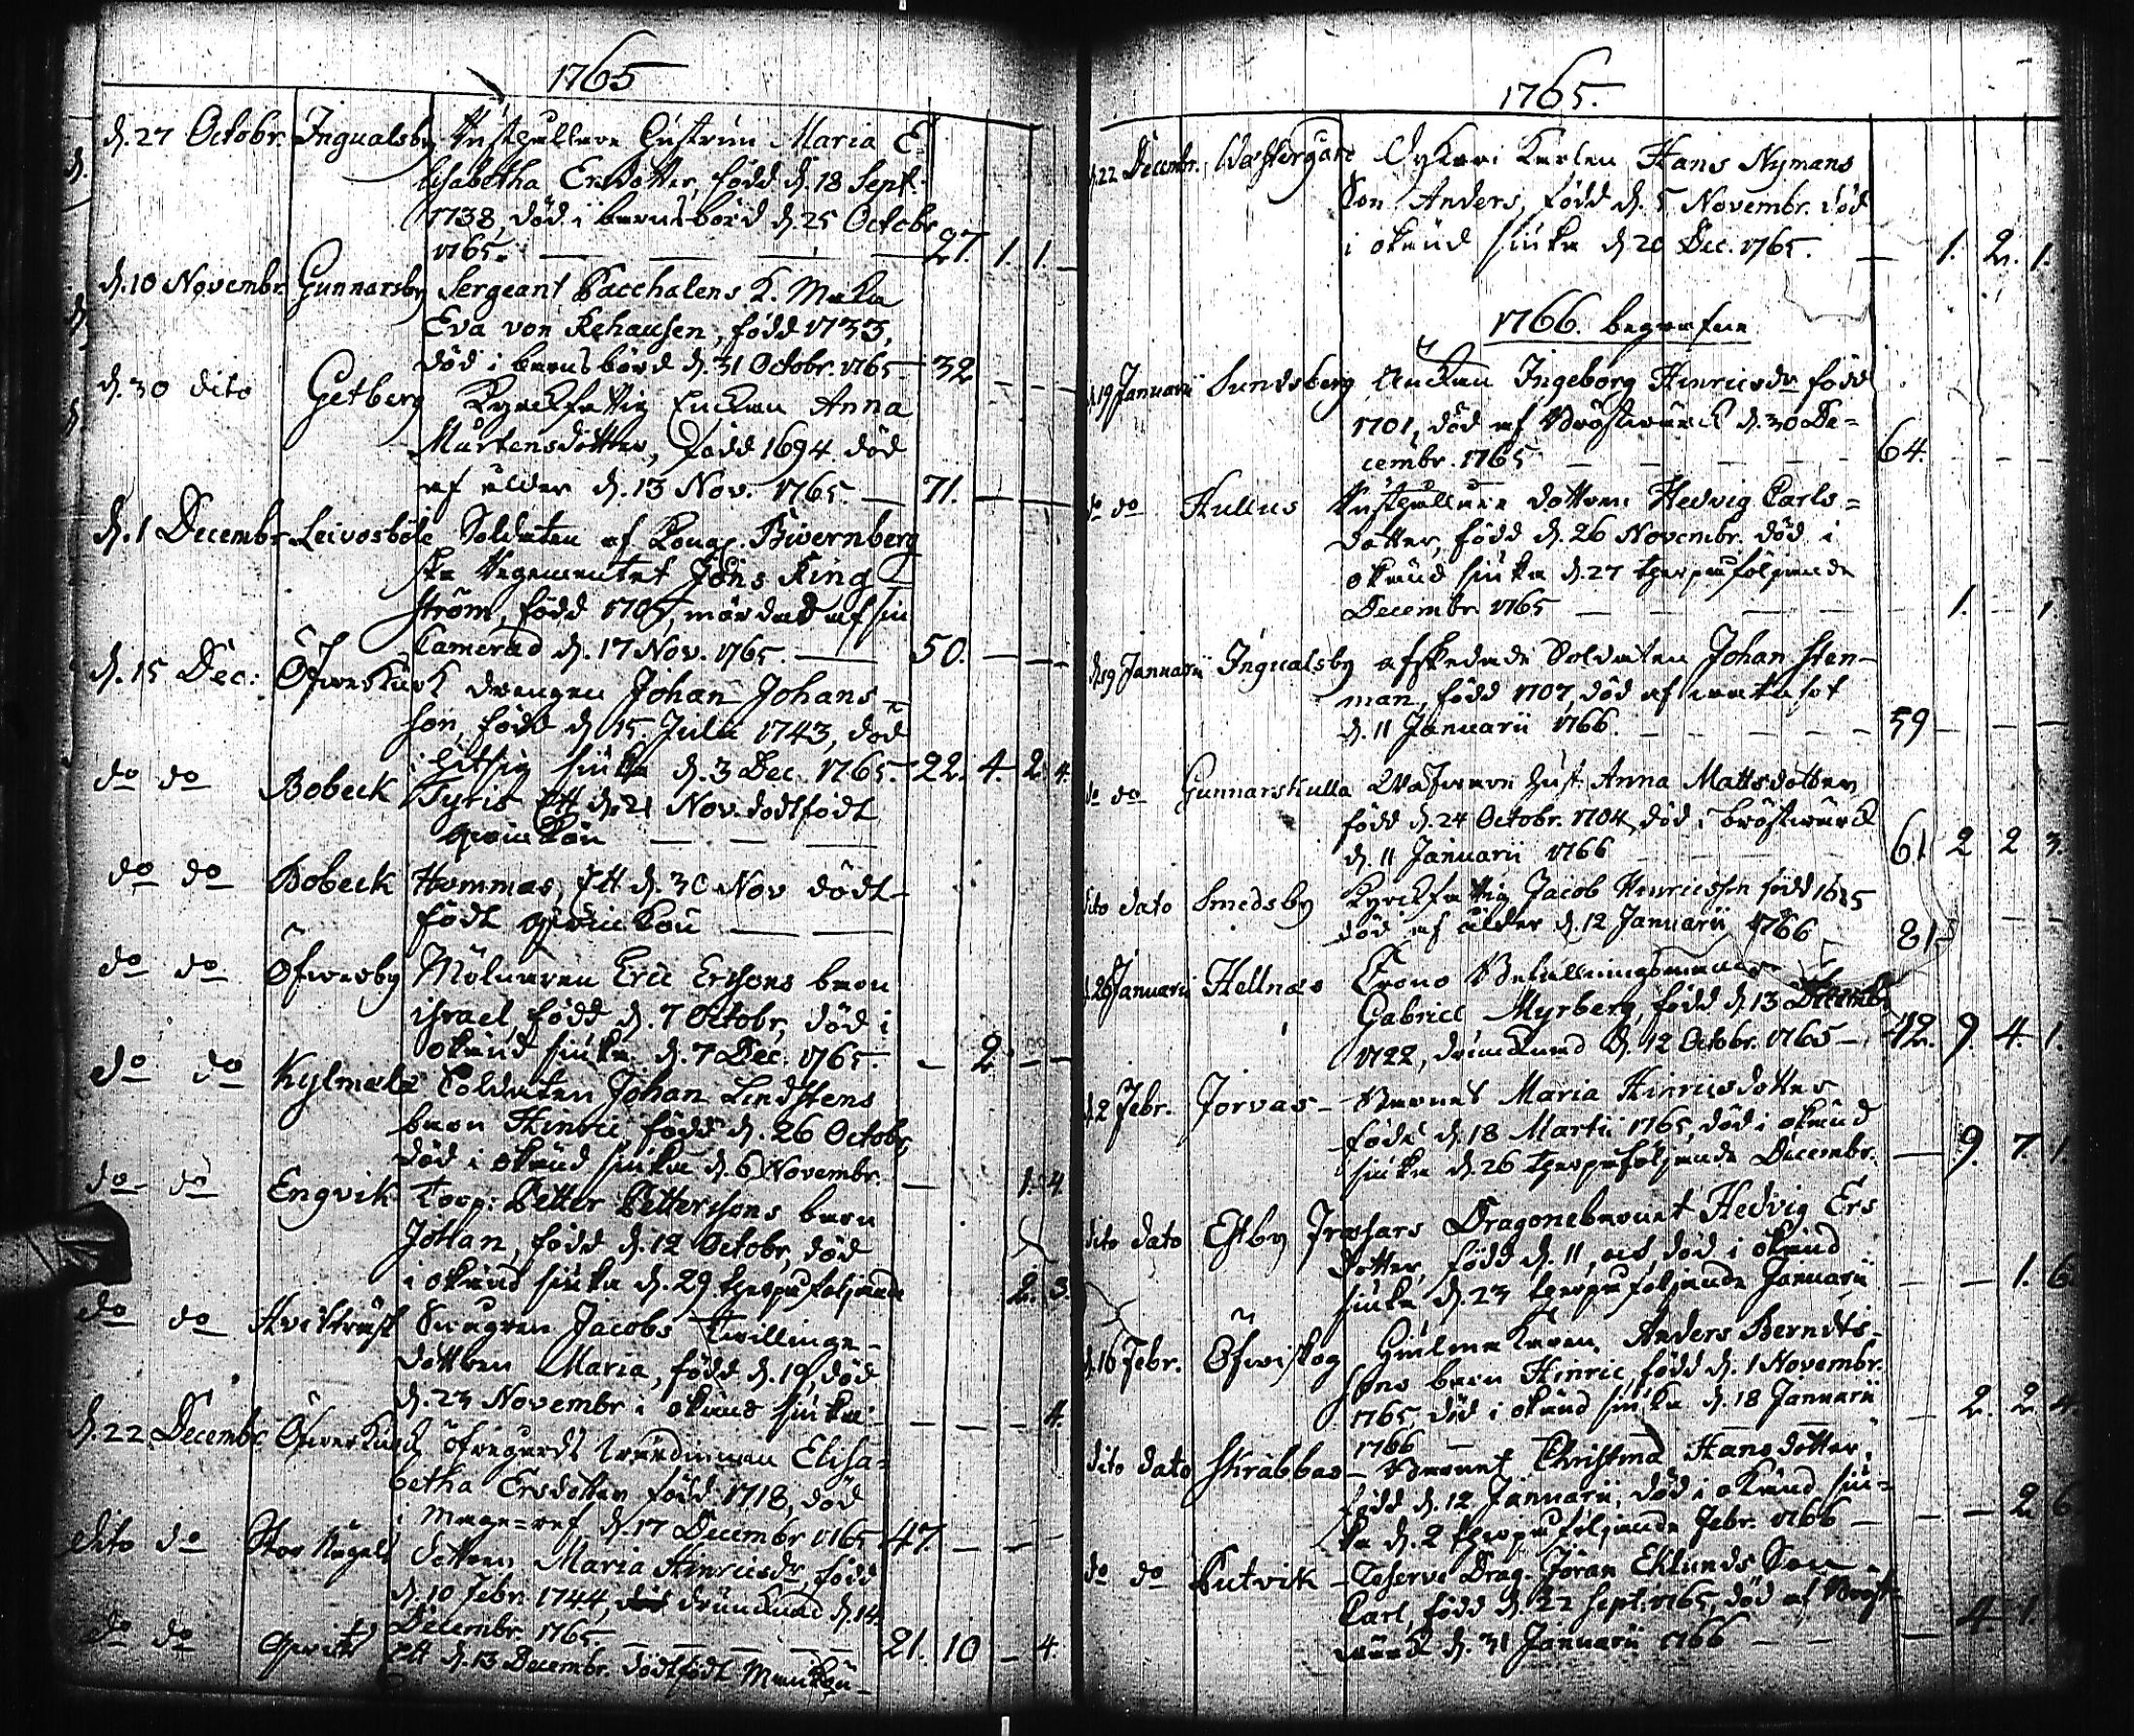 1765
d. 27 Octobr. Ingvalsby Rusthållare hustrun Maria E-
lisabetha Ersdotter, född d. 18 Sept.
1738, död i barnsbörd d. 25 Octobr.
1765. 27. 1. 1.
d. 10 Novembr. Gunnarsby Sergeant Pacchalens K. Maka
Eva von Rehausen, född 1733,
död i barnsbörd d. 31 Octobr. 1765. 32
d. 30 dito Getberg Kyrckfattig Enckan Anna
Mårtensdotter, född 1694 död
af ålder d. 13 Nov. 1765. 71.
d. 1 Decembr. Leivosböle Soldaten af Kongl. Biörnberg
ska Regementet Jöns Ring
ström, född 1705, mördad af sin
Camerad d. 17 Nov. 1765. 50.
d. 15 Dec: Öfverkurk drengen Johan Johans-
son, född d. 15 Julii 1743, död
i hitsig siuka d. 3 Dec. 1765. 22. 4. 2. 4.
do do Bobeck Tyris Ett d. 21 Nov. dödfödt
qvinkön
do do Bobeck Hemmas, Ett d. 30 Nov dödt-
födt qvinkön
do do Öfwerby Mölnaren Eric Ersons barn
israel, född d. 7 Octobr, död i
okänd siuka d. 7 Dec. 1765. 2
do do Kylmälä Soldaten Johan Lindstens
barn Hinric född d. 26 Octobr,
död i okänd siuka d. 6 Novembr. 1. 4.
do do Engvik Torp: Petter Pettersons barn
Johan, född d. 12 Octobr, död
i okänd siuka d. 29 therpåföljande 2. 3.
do do Hvitträsk Jacobs twillinge-
dottren Maria, född d. 19, död
d. 23 Novembr i okänd siuka. 4.
d. 22 Decembr Öfverkurk öfregårds Elisa-
betha Ersdotter född 1718, död
i d. 17 Decembr 1765 47.
dito do Stor Kägels dottren Maria Hinricsdr, född
d. 10 Febr. 1744, drunknad d. 14
Decembr. 1765. 21. 10 4.
do do Ett d. 13 Decembr. dödfödt Mankön

1765.
d. 22 Decembr. Westergård Karlen Hans Nymans
Son Anders, född d. 5 Novembr. död
i okänd siuka d. 20 Dec. 1765. 1. 2. 1.
1766. begrafne
d. 19 Januarii Sundsberg Enckan Ingeborg Hinricsdr född
1701, död af Bröstwärck d. 30 De=
cembr. 1765 64.
do do Kullus Rusthållare dottren Hedvig Carls=
dotter, född d. 26 Novembr. död i
okänd siuka d. 27 therpåföljande
Decembr. 1765 1. 1.
d. 19 Januarii Ingvalsby afskedade Soldaten Johan Sten-
man, född 1707, död af
d. 11 Januarii 1766. 59
do do Gunnarskulla hust: Anna Mattsdotter
född d. 24 Octobr. 1704, död i bröstwärck
d. 11 Januarii 1766 61 2 2 3.
dito dato Smedsby Kyrckfattig Jacob Hinricsson född 1685
död af ålder d. 12 Januarii 1766 81
d. 26 Januarii Hellnäs Crono Befallningsmannen
Gabriel Myrberg, född d. 13 Decembr
1722, drunknad d. 12 Octobr. 1765 42. 9. 4. 1.
d. 2 Febr. Jorvas Barnet Maria Hinricsdotter
född d. 18 Martii 1765, död i okänd
siuka d. 26 therpåföljande Decembr. 9. 7. 1.
dito dato Estby Dragonebarnet Hedvig Ers
dotter, född d. 11, död i okänd
siuka d. 23 therpåföljande Januarii 1. 6.
d. 16 Febr. Öfwitskog Anders Berndts-
sons barn Hinric, född d. 1 Novembr.
1765, död i okänd siuka d. 18 Januarii 2. 2. 4.
1766
dito dato Skräbbas Barnet Christina Hansdotter,
född d. 12 Januarii, död i okänd siu=
ka d. 2 therpåföljande Febr. 1766 2 6
do do Butvik Reserve Drag. Jöran Eklunds Son
Carl, född d. 22 Sept. 1765, död af Bröst-
wärck d. 31 Januarii 1766 4. 1.